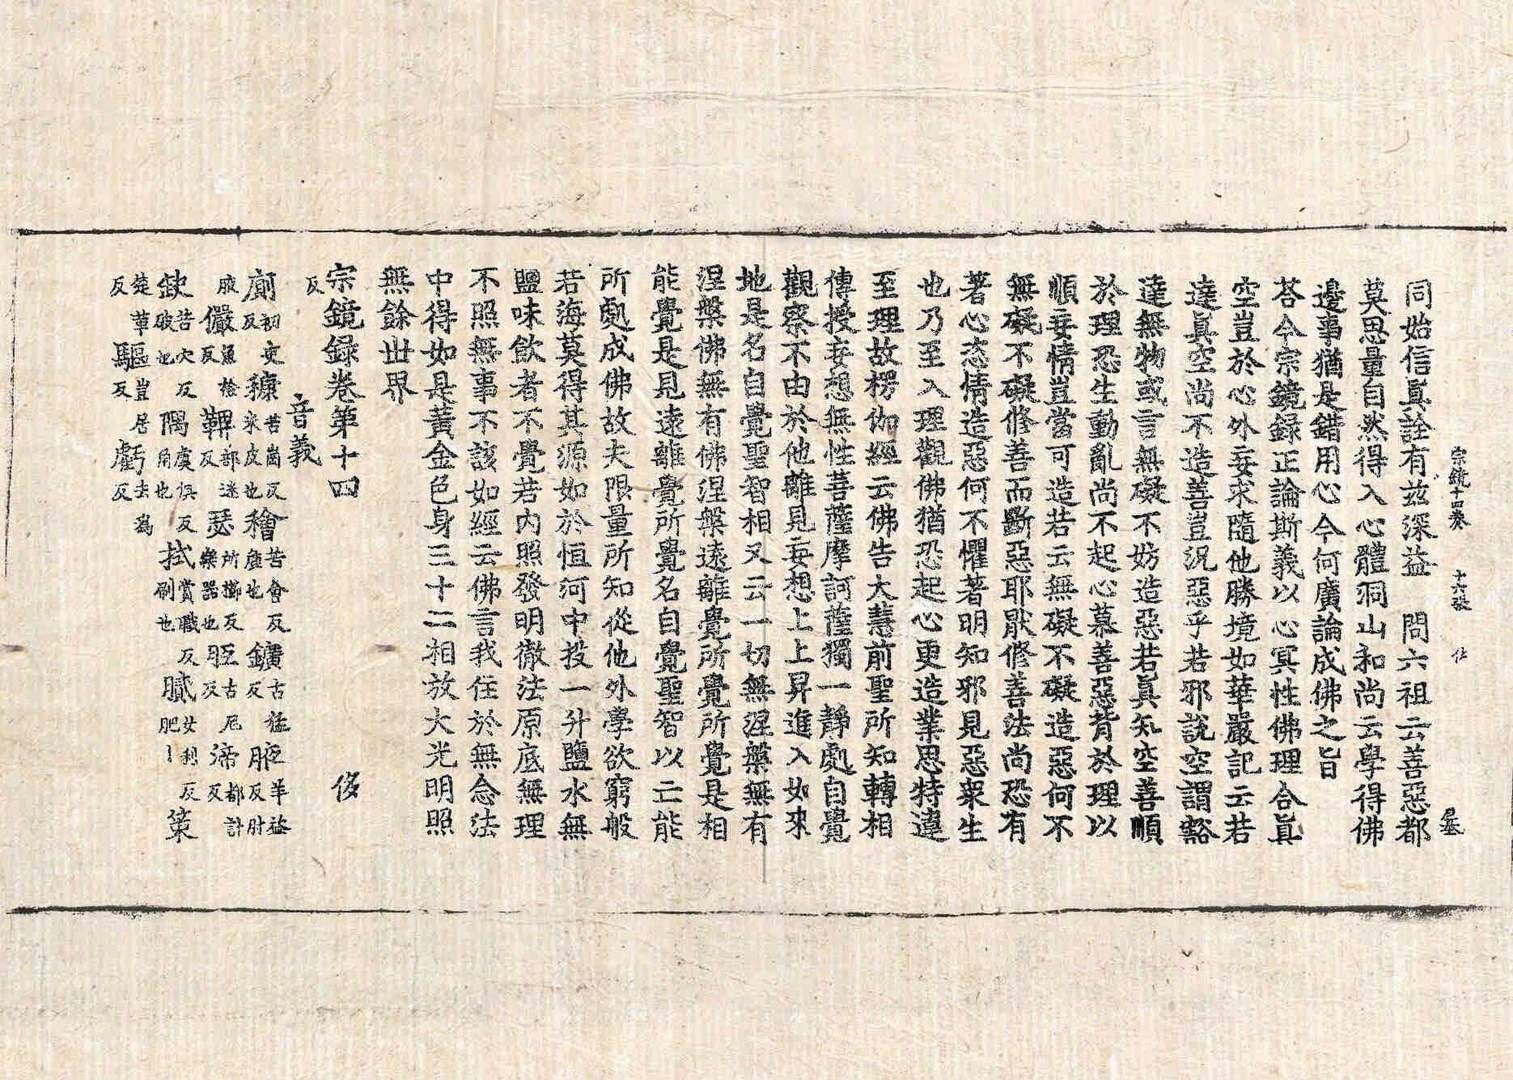 宗鏡十四卷 十六張 仕
同始信眞詮有茲深益 問六祖云善惡都
莫思量自然得入心體洞山和尚云學得佛
邊事猶是錯用心今何廣論成佛之旨
荅今宗鏡錄正論斯義以心冥性佛理合眞
空豈於心外妄求隨他勝境如華嚴記云若
達眞空尚不造善豈況惡乎若邪說空謂豁
達無物或言無礙不妨造惡若眞知空善順
於理恐生動亂尚不起心慕善惡背於理以
順妄情豈當可造若云無礙不礙造惡何不
無礙不礙修善而斷惡耶猒修善法尚恐有
著心恣情造惡何不懼著明知邪見惡衆生
也乃至入理觀佛猶恐起心更造業思特違
至理故楞伽經云佛告大慧前聖所知轉相
傳授妄想無性菩薩摩訶薩獨一靜處自覺
觀察不由於他離見妄想上上昇進入如來
地是名自覺聖智相又云一切無涅槃無有
涅槃佛無有佛涅槃遠離覺所覺所覺是相
能覺是見遠離覺所覺名自覺聖智以亡能
所處成佛故夫限量所知從他外學欲窮般
若海莫得其源如於恒河中投一升鹽水無
鹽味飲者不覺若內照發明徹法原底無理
不照無事不該如經云佛言我住於無念法
中得如是黃金色身三十二相放大光明照
無餘世界
宗鏡錄卷第十四 侈
音義
廁初吏反 穅苦崗反米皮也 穭苦會反麁也 鑛古猛反 胏𦙶羊益反
儼魚檢反 鞞部迷反 瑟所櫛反樂器也 胝丁尼反 渧都計反
缺苦穴反破也 隅虞俱反角也 拭賞職反刷也 膩女利反肥〻 策
楚革反 驅豈居反 虧去爲反